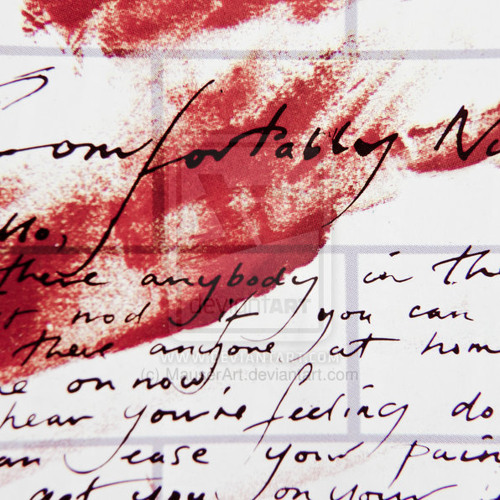 Comfortably N
llo,
there anybody in the
nod if you can
there anyone at hom
e on now,
hear you're feeling do
an ease your pain
get you on your
deviantART
WWW.DEVIANTART.COM
(c) MaurerArt.deviantart.com